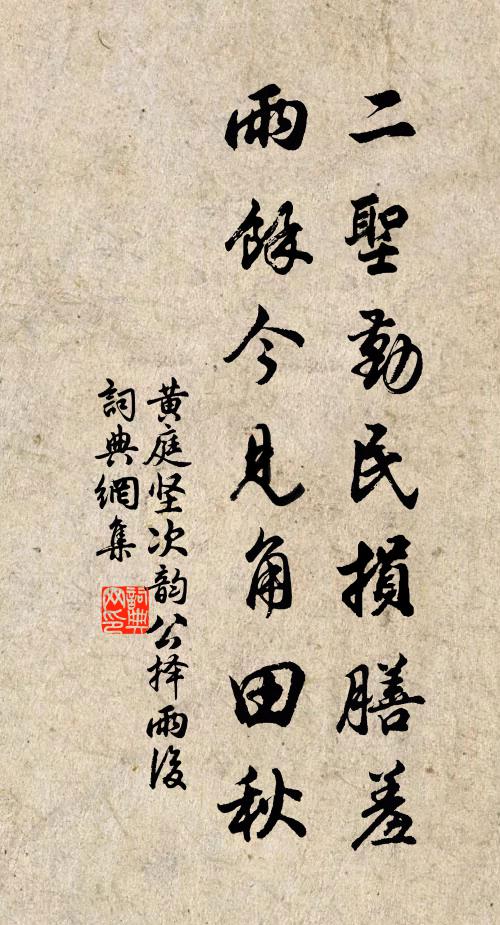 二聖勤民損膳羞
雨餘今見角田秋
黄庭坚次韵公择雨後
詞典網集
詞典
网印